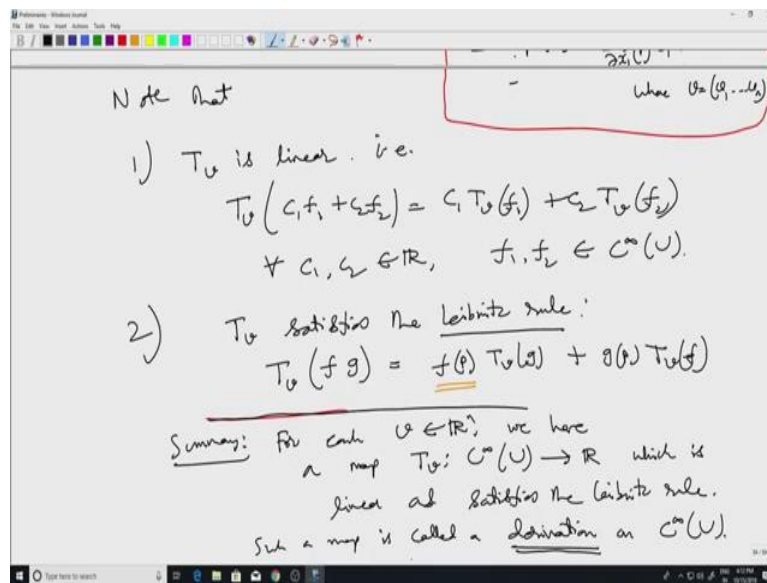 Preliminaries - Windows Journal
File Edit View Insert Actions Tools Help
∂x₁(p)
where v=(v₁...vₙ)
Note that
1) T_v is linear. i.e.
T_v (c₁f₁ + c₂f₂) = c₁ T_v(f₁) + c₂ T_v(f₂)
∀ c₁, c₂ ∈ ℝ, f₁, f₂ ∈ C^∞(U).
2) T_v satisfies the Leibnitz rule:
T_v (f g) = f(p) T_v(g) + g(p) T_v(f)
Summary: For each v ∈ ℝⁿ, we have
a map T_v: C^∞(U) → ℝ which is
linear and satisfies the Leibnitz rule.
Such a map is called a derivation on C^∞(U).
Type here to search